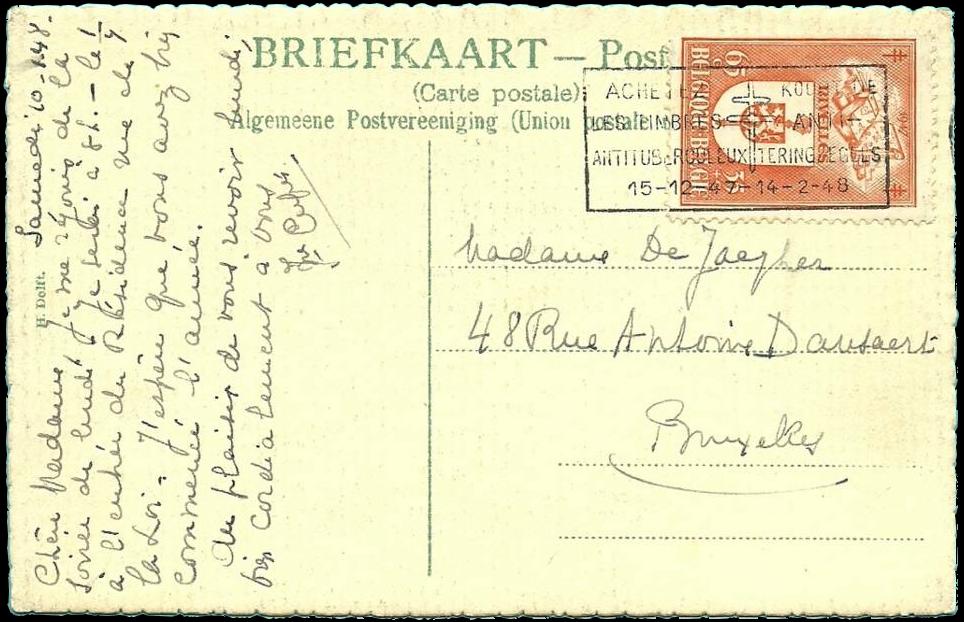 BRIEFKAART — Post
(Carte postale)
Algemeene Postvereeniging (Union postale
H. Dolft.
65 c + 35
BELGIQUE BELGIE
BRUXELLES
ACHETEZ KOOPT DE
LES TIMBRES ANTI-
ANTITUBERCULEUX TERINGZEGELS
15-12-47-14-2-48
Samedi 10-1-48.
Chère Madame Je me réjouis de la
soirée de lundi. Je serai à 8h. – le 1/4
à l'entrée du Résidence rue de
la Loi. J'espère que vous avez bien
commencé l'année.
Au plaisir de vous revoir lundi,
bien cordialement à vous
Madame De Jaegher
48 Rue Antoine Dansaert
Bruxelles